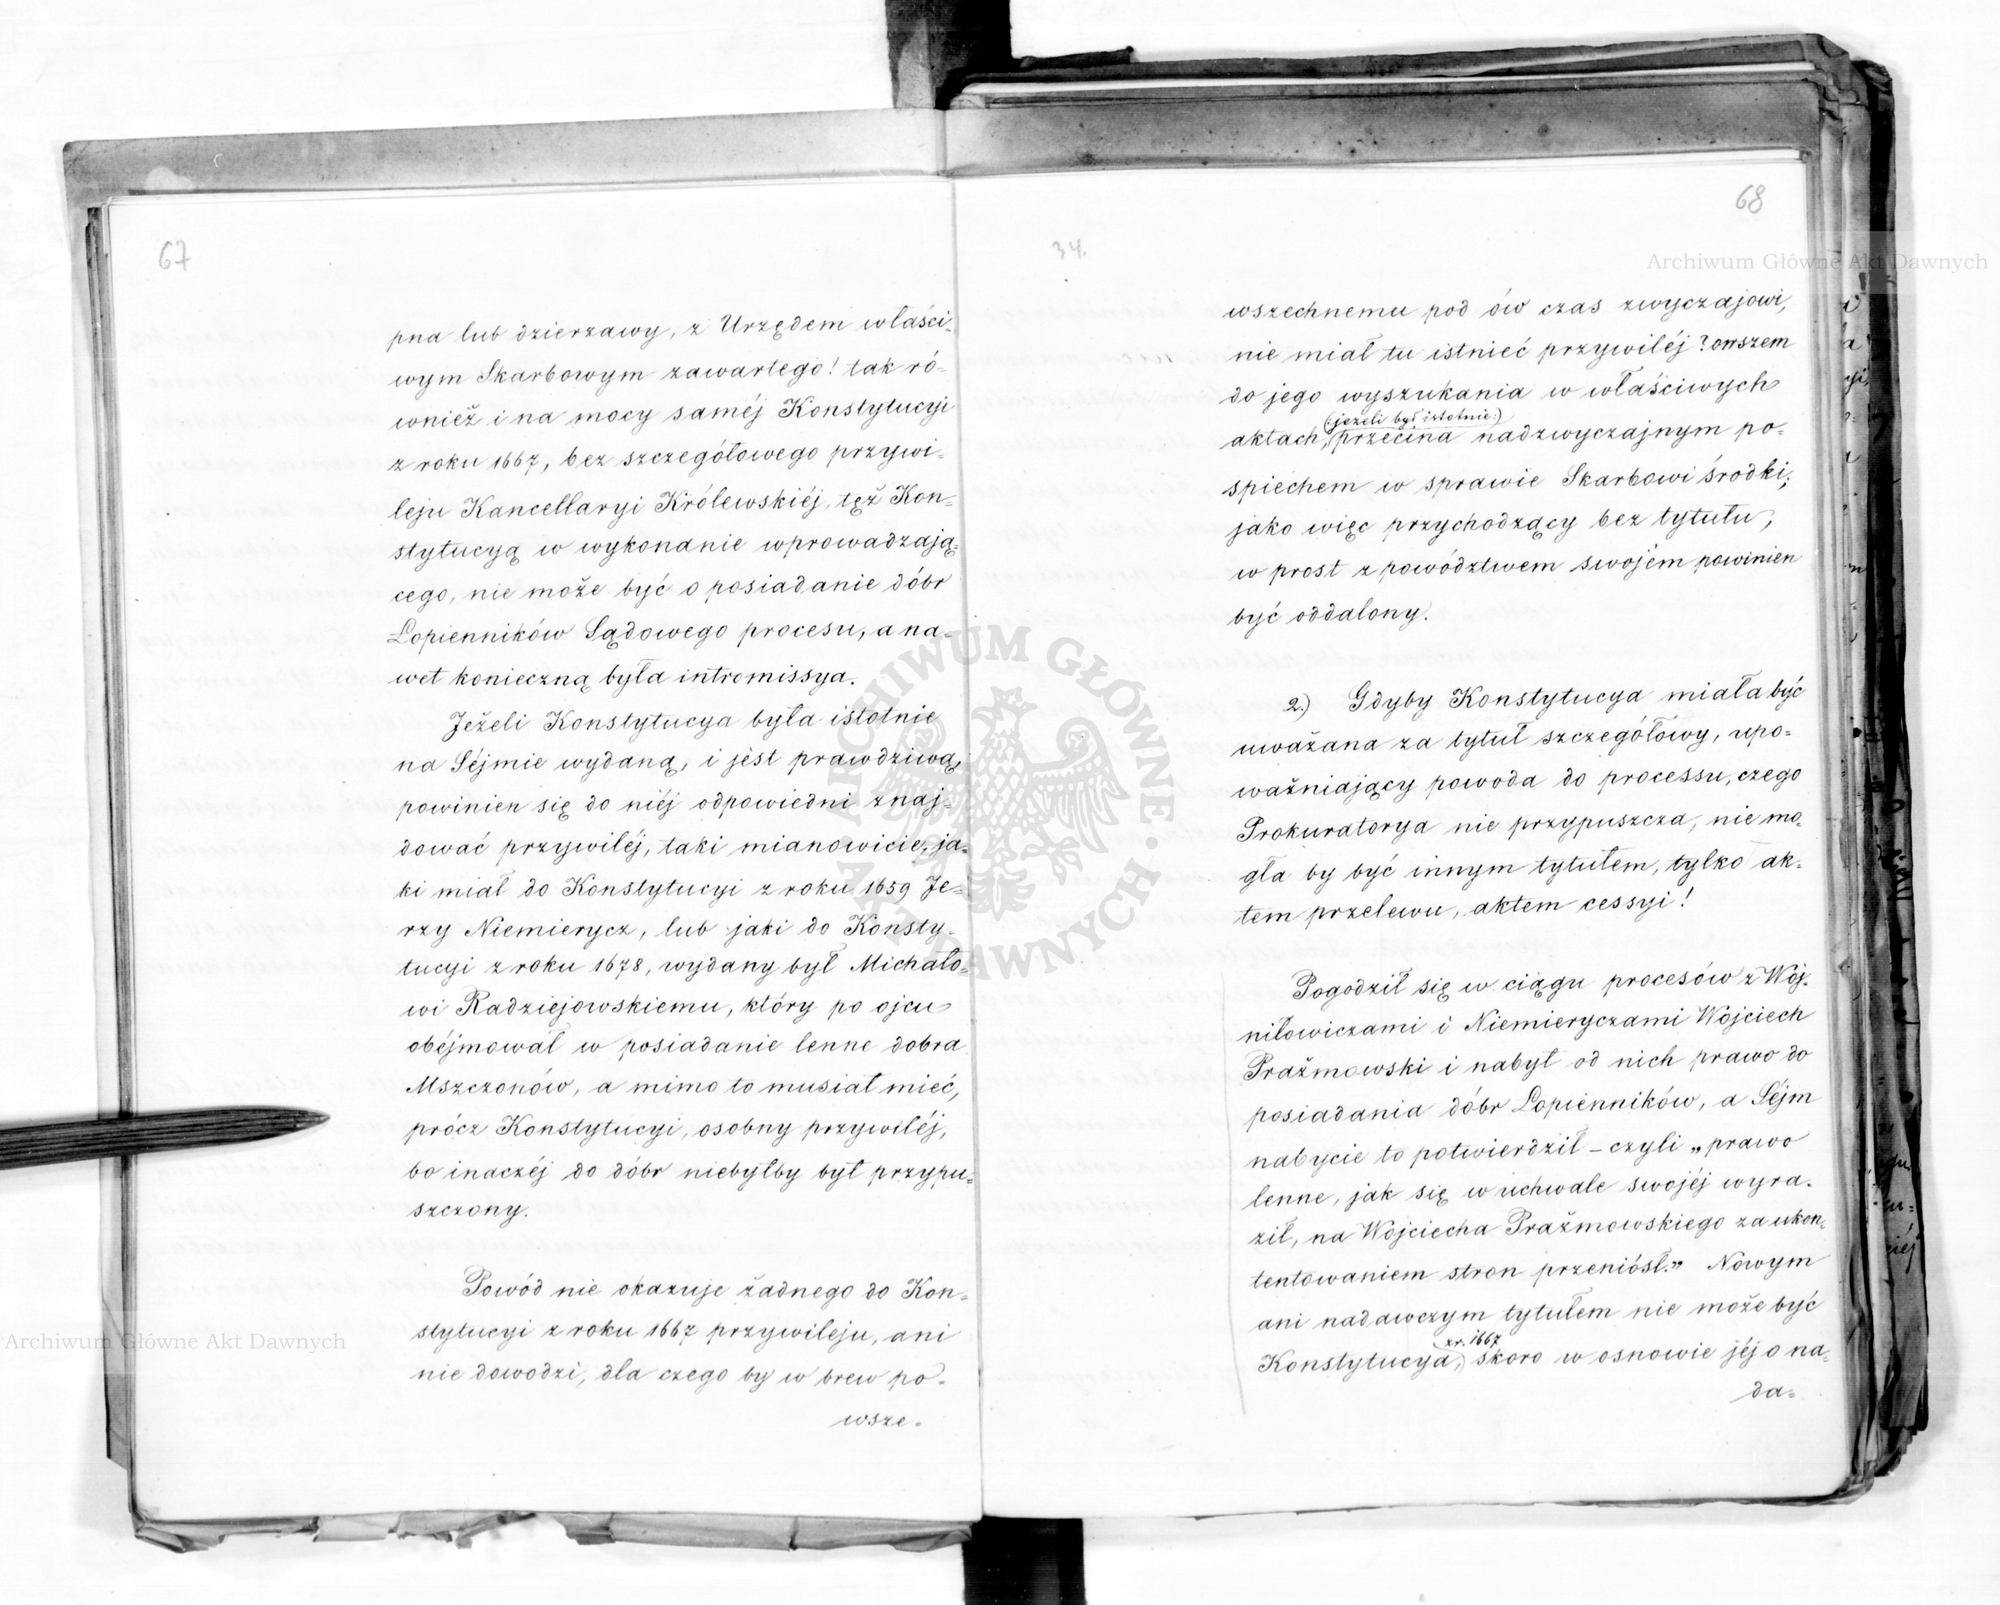 67
pna lub dzierzawy, z Urzędem właści-
wym Skarbowym zawartego! tak ró-
wnież i na mocy saméj Konstytucyi
z roku 1667, bez szczegółowego przywi-
leju Kancellaryi Królewskiéj, tęż Kon-
stytucyą w wykonanie wprowadzają-
cego, nie może być o posiadanie dóbr
Łopienników Sądowego procesu, a na-
wet konieczną była intromissya.
Jeżeli Konstytucya była istotnie
na Séjmie wydaną, i jèst prawdziwą,
powinien się do niéj odpowiedni znaj-
dować przywiléj, taki mianowicie, ja-
ki miał do Konstytucyi z roku 1659 Je-
rzy Niemierycz, lub jaki do Konsty-
tucyi z roku 1678, wydany był Michało-
wi Radziejowskiemu, który po ojcu
obéjmował w posiadanie lenne dobra
Mszczonów, a mimo to musiał mieć,
prócz Konstytucyi, osobny przywiléj,
bo inaczéj do dóbr niebyłby był przypu-
szczony.
Powód nie okazuje żadnego do Kon-
stytucyi z roku 1667 przywileju, ani
nie dowodzi, dla czego by w brew po-
wsze-
34.
68
wszechnemu pod ów czas zwyczajowi,
nie miał tu istnieć przywiléj? owszem
do jego wyszukania w właściwych
(jeżeli był istotnie:)
aktach, przecina nadzwyczajnym po-
spiechem w sprawie Skarbowi środki;
jako więc przychodzący bez tytułu,
w prost z powództwem swojém powinien
być oddalony.
2.) Gdyby Konstytucya miała być
uważana za tytuł szczegółowy, upo-
ważniający powoda do processu, czego
Prokuratorya nie przypuszcza, nie mo-
gła by być innym tytułem, tylko ak-
tem przelewu, aktem cessyi!
Pogodził się w ciągu procesów z Woj-
niłowiczami i Niemieryczami Wojciech
Prażmowski i nabył od nich prawo do
posiadania dóbr Łopienników, a Séjm
nabycie to potwierdził – czyli „prawo
lenne, jak się w uchwale swojéj wyra-
ził, na Wojciecha Prażmowskiego za ukon-
tentowaniem stron przeniósł." Nowym
ani nadawczym tytułem nie może być
z r. 1667
Konstytucya, skoro w osnowie jéj o na-
da-
Archiwum Główne Akt Dawnych
Archiwum Główne Akt Dawnych
ARCHIWUM GŁÓWNE AKT DAWNYCH